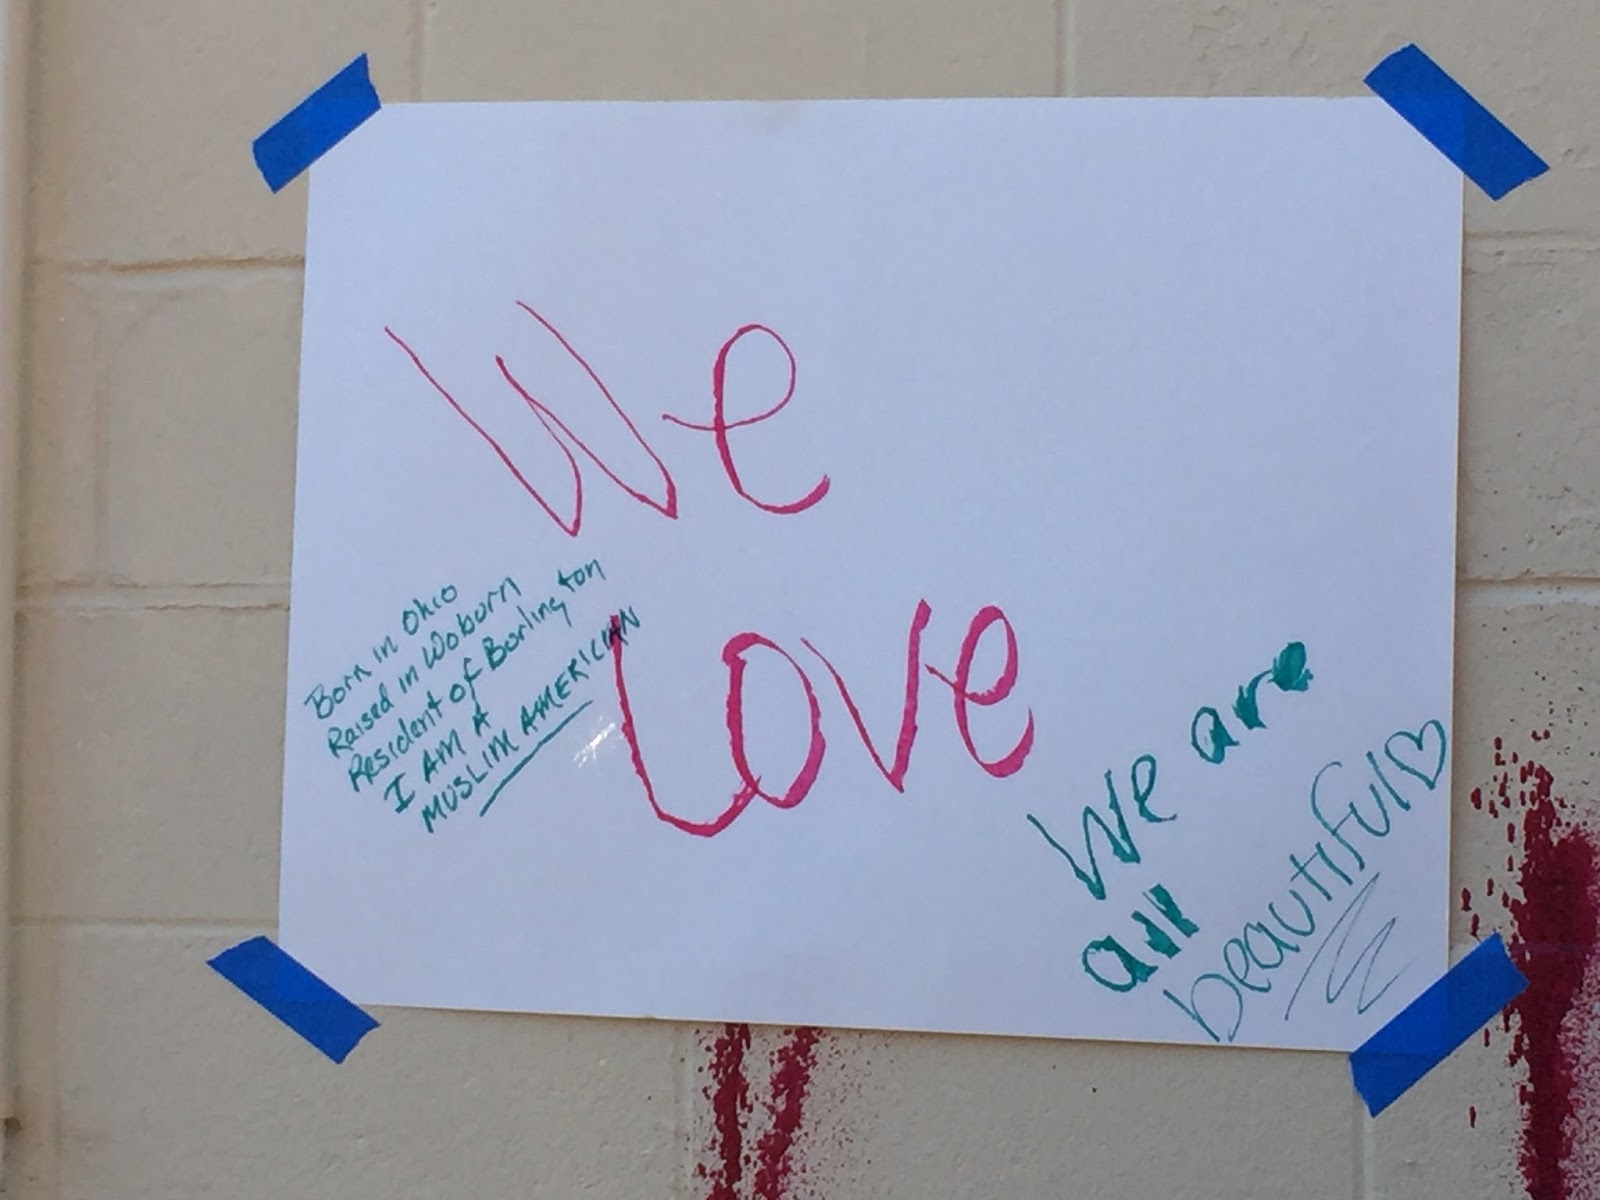 We
Love
Born in Ohio
Raised in Woburn
Resident of Burlington
I AM A
MUSLIM AMERICIAN
We are
all
beautiful